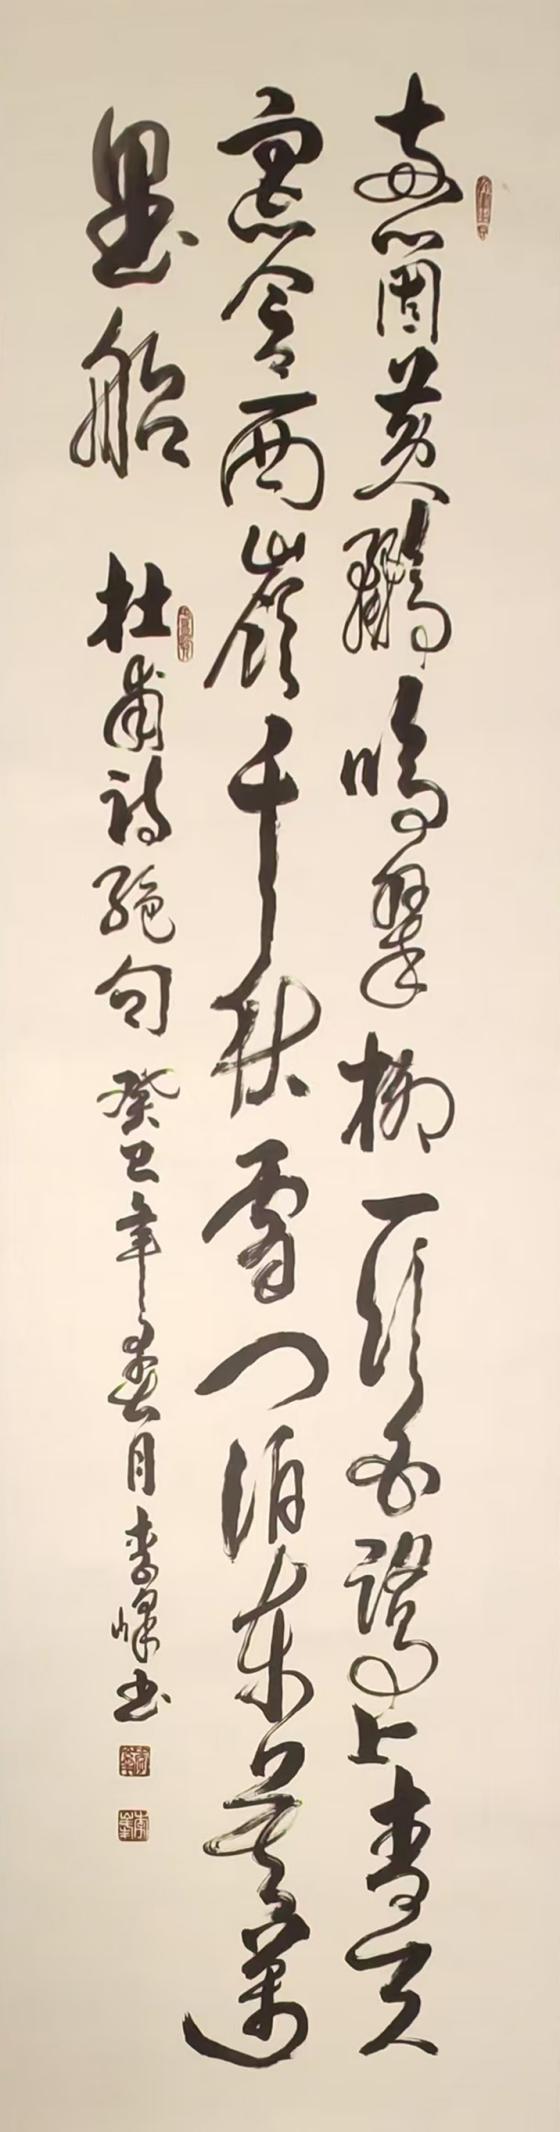 兩箇黃鸝鳴翠柳一行白鷺上青天
窓含西嶺千秋雪門泊東吳萬
里船 杜甫詩絕句 癸丑年春月李峰书